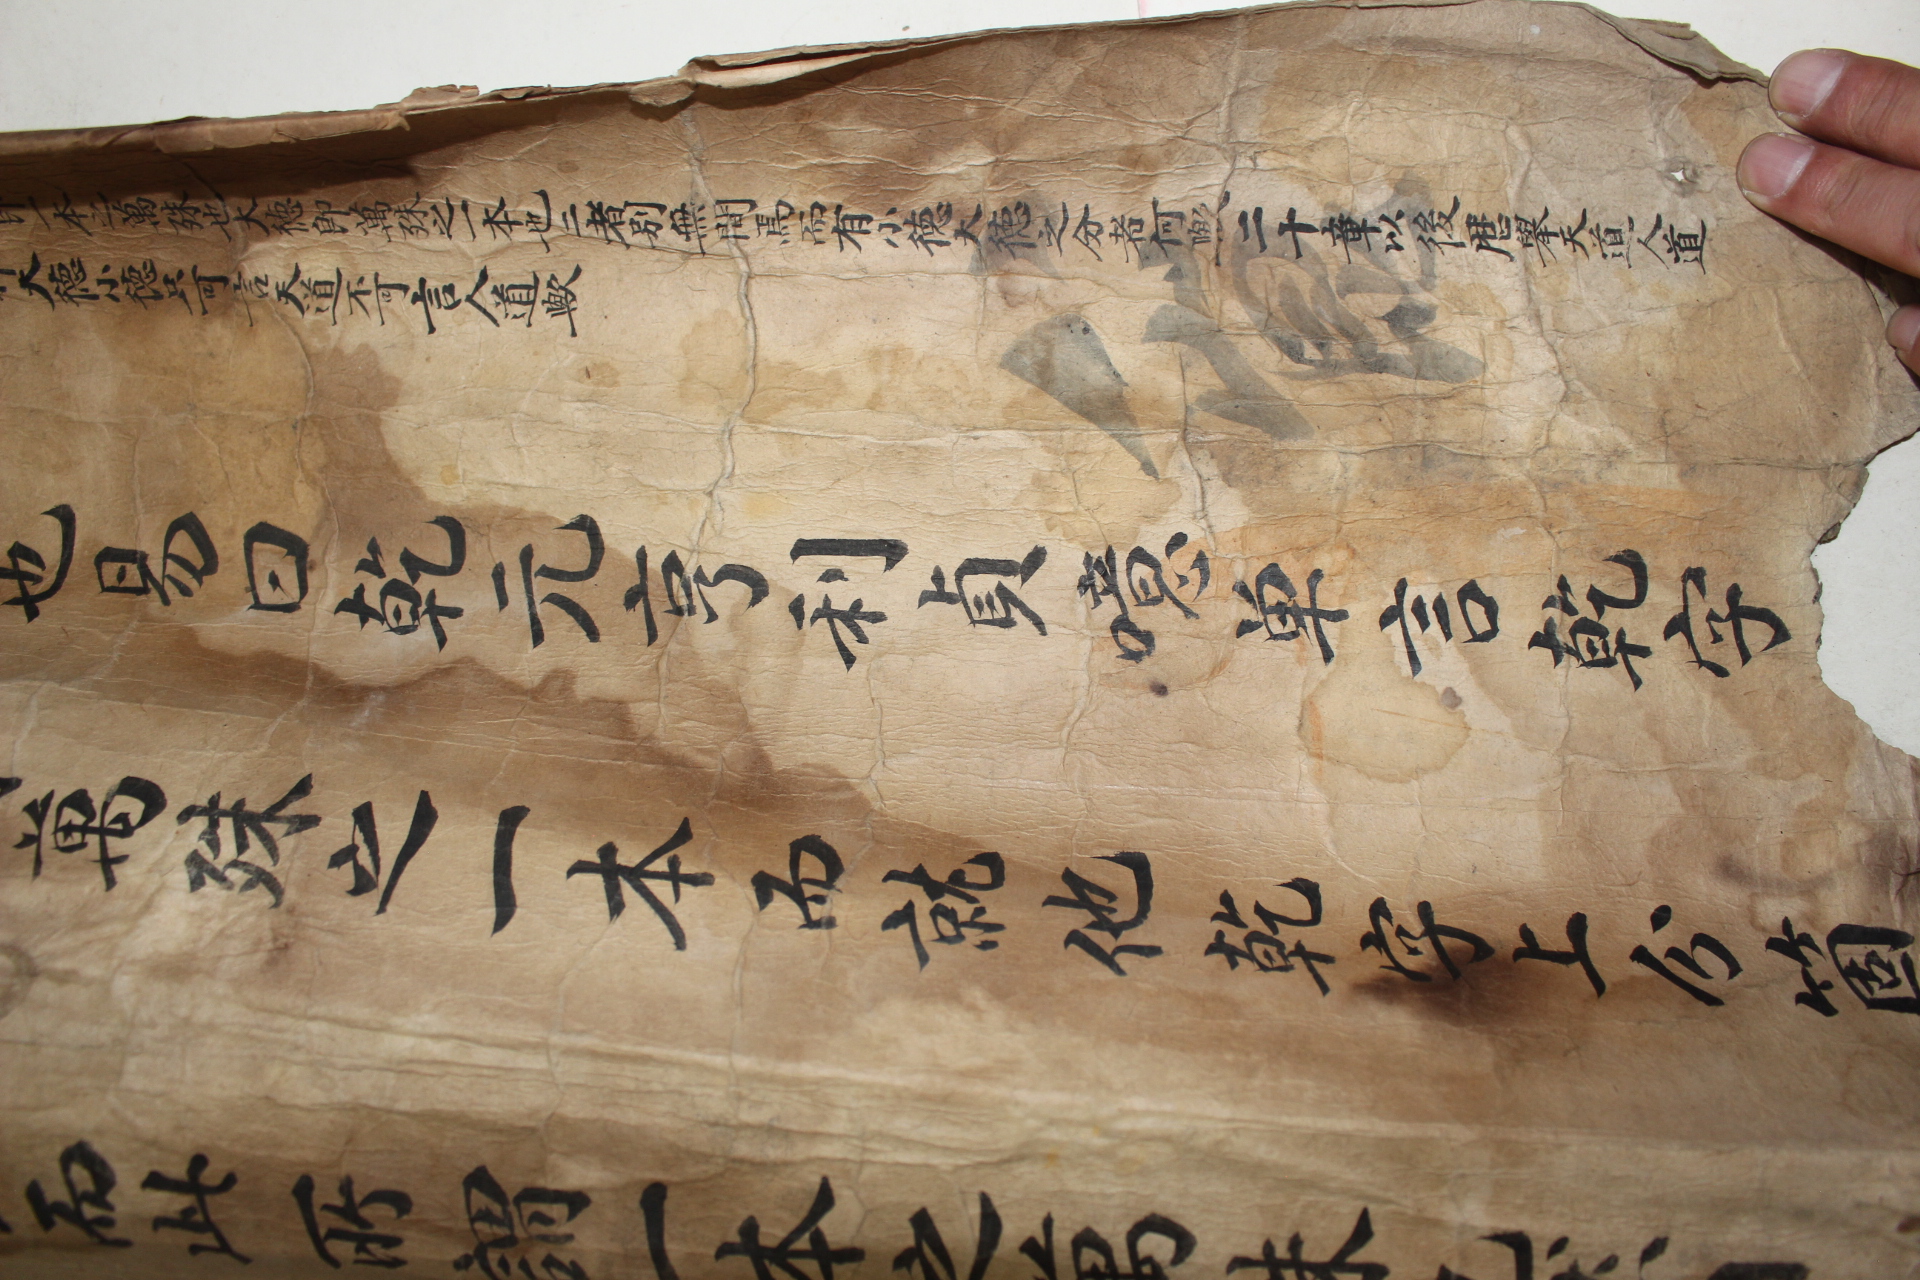 一本之萬殊也大德即萬殊之一本也二者別無間焉而有小德大德之分者何歟二十章以後歷擧天道人道
大德小德只可言天道不可言人道歟
也易曰乾元亨利貞噫單言乾字
萬殊之一本而就他乾字上分箇
而此所謂一本之萬殊也